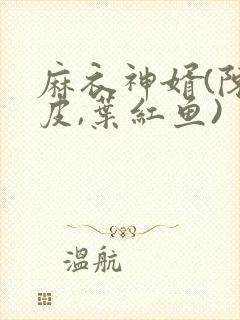 麻衣神婿(陈
皮,葉紅鱼)
温航